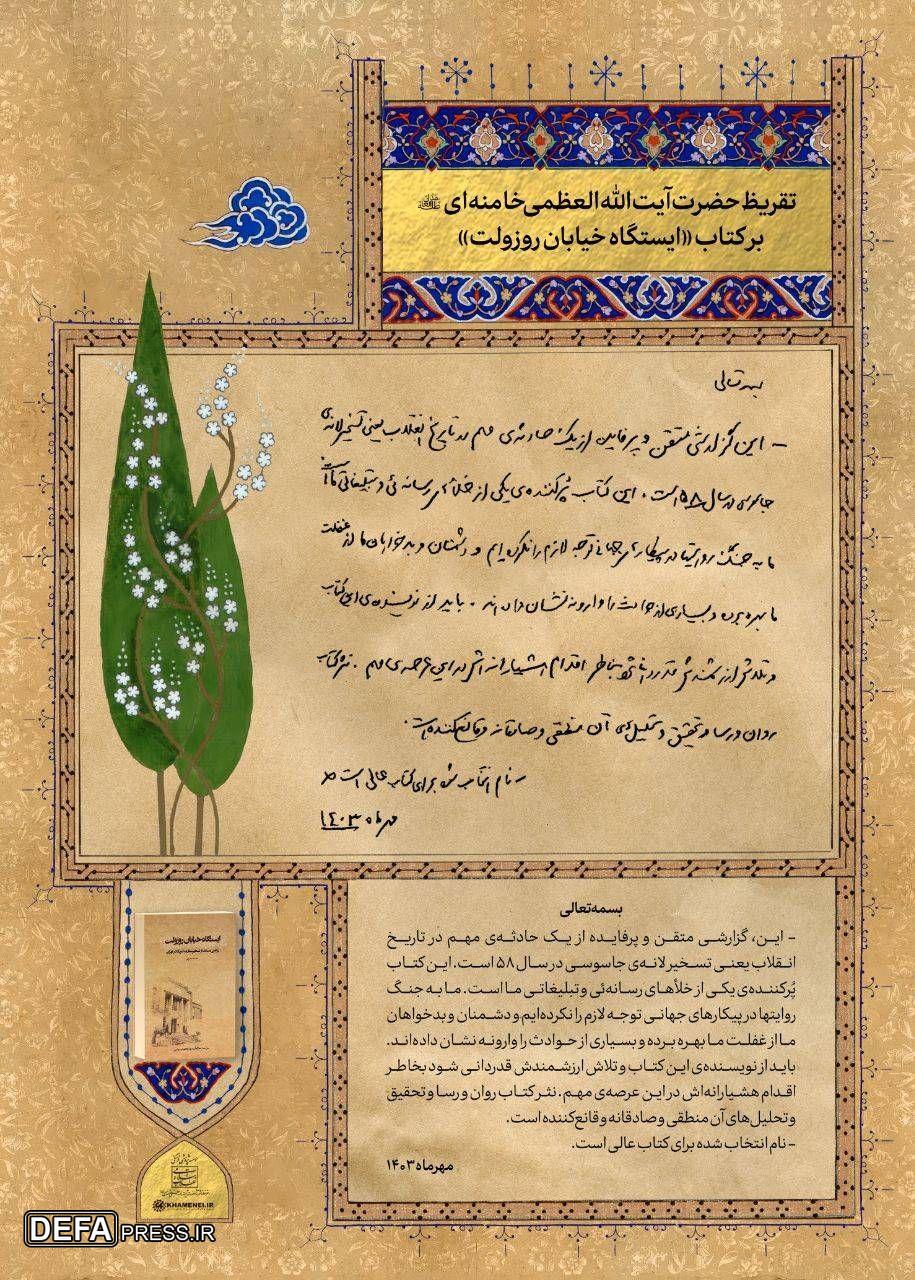 تقریظ حضرت آیت الله العظمی خامنه‌ای
بر کتاب «ایستگاه خیابان روزولت»
بسمه تعالی
- این گزارشی متقن و پرفایده از یک حادثه‌ی مهم در تاریخ انقلاب یعنی تسخیر لانه‌ی
جاسوسی در سال ۵۸ است. این کتاب پُرکننده‌ی یکی از خلأهای رسانه‌ئی و تبلیغاتی ما است
ما به جنگ روایتها در پیکارهای جهانی توجه لازم را نکرده‌ایم و دشمنان و بدخواهان ما از غفلت
ما بهره برده و بسیاری از حوادث را وارونه نشان داده‌اند. باید از نویسنده‌ی این کتاب
و تلاش ارزشمندش قدردانی شود بخاطر اقدام هشیارانه‌اش در این عرصه‌ی مهم. نثر کتاب
روان و رسا و تحقیق و تحلیل‌های آن منطقی و صادقانه و قانع‌کننده است.
- نام انتخاب شده برای کتاب عالی است
مهر ماه ۱۴۰۳
بسمه‌تعالی
- این، گزارشی متقن و پرفایده از یک حادثه‌ی مهم در تاریخ
انقلاب یعنی تسخیر لانه‌ی جاسوسی در سال ۵۸ است. این کتاب
پُرکننده‌ی یکی از خلأهای رسانه‌ئی و تبلیغاتی ما است. ما به جنگ
روایتها در پیکارهای جهانی توجه لازم را نکرده‌ایم و دشمنان و بدخواهان
ما از غفلت ما بهره برده و بسیاری از حوادث را وارونه نشان داده‌اند.
باید از نویسنده‌ی این کتاب و تلاش ارزشمندش قدردانی شود بخاطر
اقدام هشیارانه‌اش در این عرصه‌ی مهم. نثر کتاب روان و رسا و تحقیق
و تحلیل‌های آن منطقی و صادقانه و قانع‌کننده است.
- نام انتخاب شده برای کتاب عالی است.
مهرماه ۱۴۰۳
ایستگاه خیابان روزولت
KHAMENEI.IR
DEFAPRESS.IR